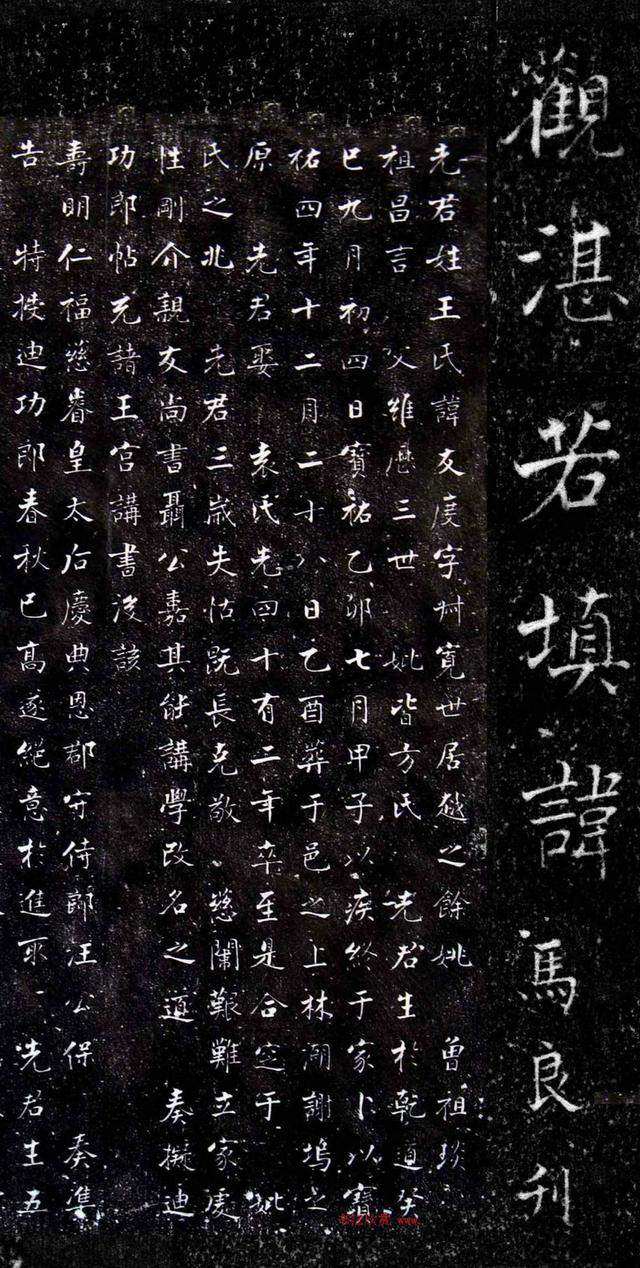 觀湛若填諱馬良刊
先君姓王氏諱友度字艸寬世居越之餘姚 曾祖琰
祖昌言 父維歷三世 妣皆方氏 先君生於乾道癸
巳九月初四日寶祐乙卯七月甲子以疾終于家卜以寶
祐四年十二月二十八日乙酉葬于邑之上林湖謝塢之
原 先君娶 袁氏先四十有二年卒至是合窆于 妣
氏之兆 先君三歲失怙既長克敬 慈闈艱難立家度
性剛介親友尚書聶公嘉其能講學改名之道 奏擬迪
功郎帖充諸王宮講書後該
壽明仁福慈睿皇太后慶典恩郡守侍郎汪公保 奏準
告 特授迪功郎春秋已高遂絕意於進取 先君生五
www.